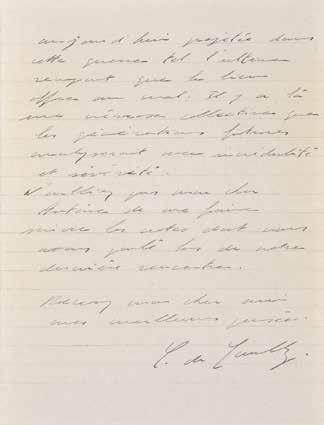 aujourd'hui projetée dans
cette guerre tel l'ultime
rempart que le bien
offre au mal. Il y a là
une névrose collective que
les générations futures
analyseront avec incrédulité
et sévérité.
N'oubliez pas mon cher
Antoine de me faire
suivre les notes dont vous
avez parlé lors de notre
dernière rencontre.
Recevez mon cher ami
mes meilleures pensées.